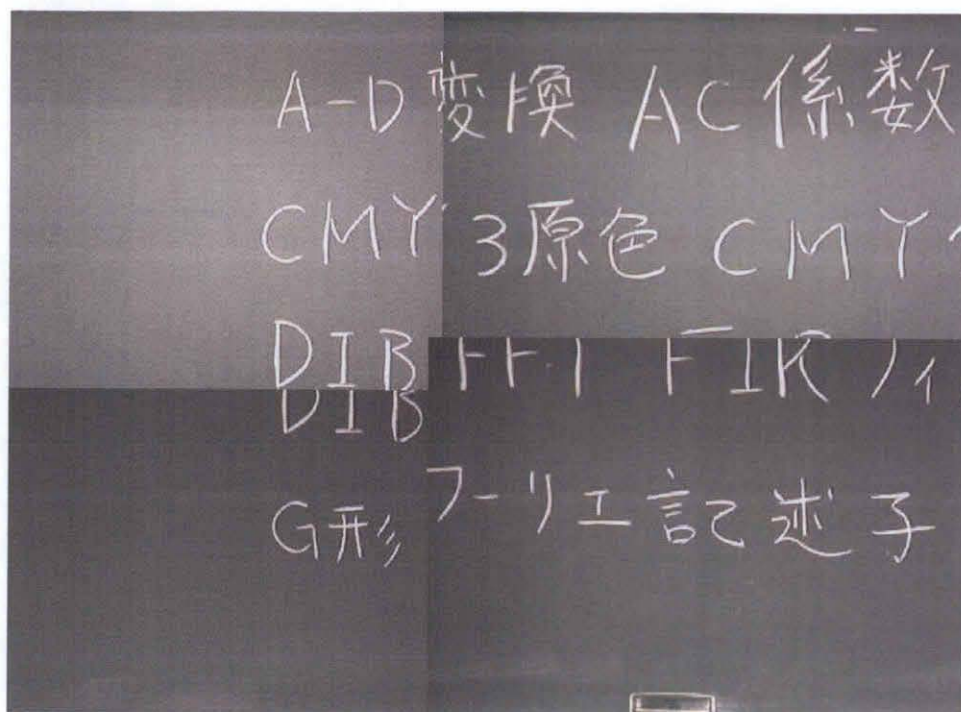 A-D変換 AC係数
CMY3原色 CMY
DIB FFT FIRフィ
DIB
G形フーリエ記述子